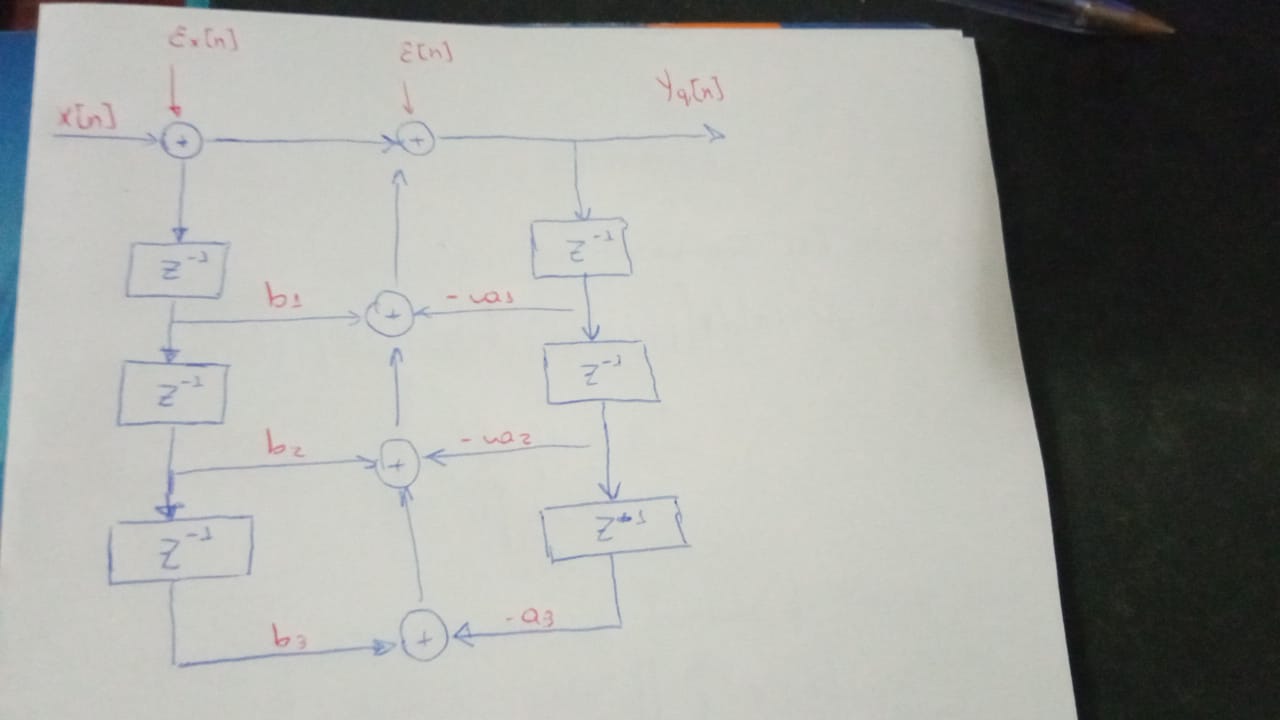 εx[n] ε[n]
x[n] yq[n]
+ +
z⁻¹ z⁻¹
b1 + -a1
z⁻¹ z⁻¹
b2 + -a2
z⁻¹ z⁻¹
b3 + -a3